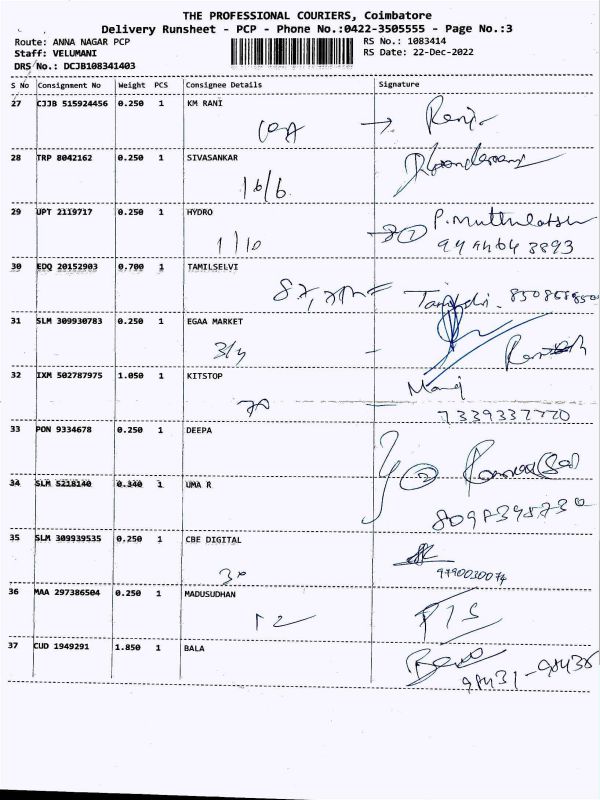 THE PROFESSIONAL COURIERS, Coimbatore
Delivery Runsheet - PCP - Phone No.:0422-3505555 - Page No.:3
Route: ANNA NAGAR PCP
RS No.: 1083414
Staff: VELUMANI
RS Date: 22-Dec-2022
DRS No.: DCJB108341403
S No Consignment No Weight PCS Consignee Details Signature
27 CJJB 515924456 0.250 1 KM RANI
28 TRP 8042162 0.250 1 SIVASANKAR
16/6
29 UPT 2119717 0.250 1 HYDRO
P.Muthulatsu
1/10
30 EDQ 20152903 0.700 1 TAMILSELVI
31 SLM 309930783 0.250 1 EGAA MARKET
3/4
32 IXM 502787975 1.050 1 KITSTOP
7339337770
33 PON 9334678 0.250 1 DEEPA
34 SLM 5218140 0.340 1 UMA R
35 SLM 309939535 0.250 1 CBE DIGITAL
9790030074
36 MAA 297386504 0.250 1 MADUSUDHAN
12
37 CUD 1949291 1.850 1 BALA
98431-98436